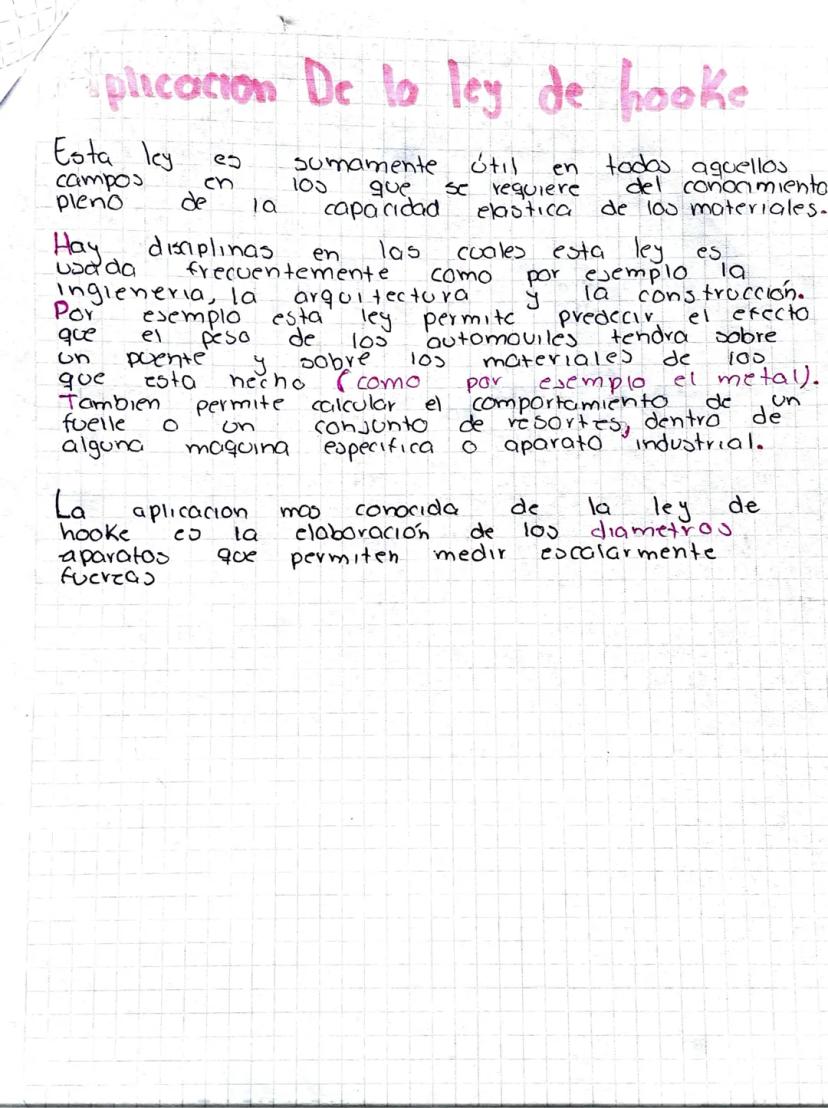 plicacion De la ley de hooke
Esta ley es sumamente útil en todos aquellos
campos en los que se requiere del conocimiento
pleno de la capacidad elastica de los materiales.
Hay disiplinas en las cuales esta ley es
usada frecuentemente como por esemplo la
inglieneria, la arquitectura y la construcción.
Por esemplo esta ley permite predecir el efecto
que el peso de los automoviles tendra sobre
un puente y sobre los materiales de los
que esta hecho (como por esemplo el metal).
Tambien permite calcular el comportamiento de un
fuelle o un conjunto de resortes, dentro de
alguna maquina especifica o aparato industrial.
La aplicacion mas conocida de la ley de
hooke es la elaboración de los diametros
aparatos que permiten medir escalarmente
fuerzas